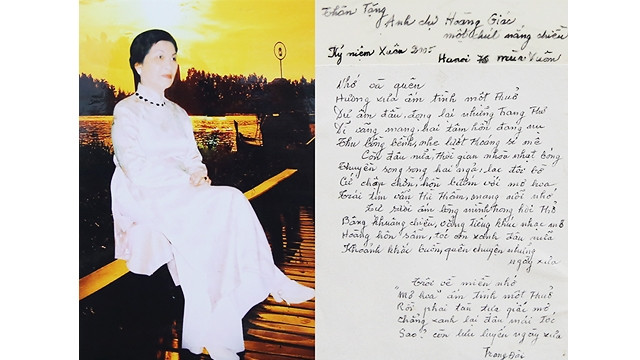 Thân Tặng
Anh chị Hoàng Giác
một chút nắng chiều
Kỷ niệm Xuân 2005
Hanoi mùa Xuân
Nhớ và quên
Hương xưa ấm tình một thuở
Dư âm đâu, đọng lại những trang thơ
Vì cùng mang hai tâm hồn đang
Thu bồng bềnh, nhẹ lướt si mê
Còn đâu nữa, thời gian nhòa nhạt bóng
Thuyền song song hai ngả, lạc đôi bờ
Cứ chập chờn, hôn bướm với mơ hoa
Trái tim vẫn mang nỗi nhớ
ấm lòng mình trong hơi thở
Bâng khuâng chiều, vẳng tiếng khúc nhạc mơ
Hoàng hôn sẫm, tóc còn xanh đâu nữa
Khoảnh khắc buồn, quên chuyện những
ngày xưa
Trôi về miền nhớ
"Mơ hoa" ấm tình một thuở
Rồi phai tàn xưa giấc mơ
Chẳng xanh lại đâu mái tóc
Sao? còn lưu luyến ngày xưa
Trọng Đài